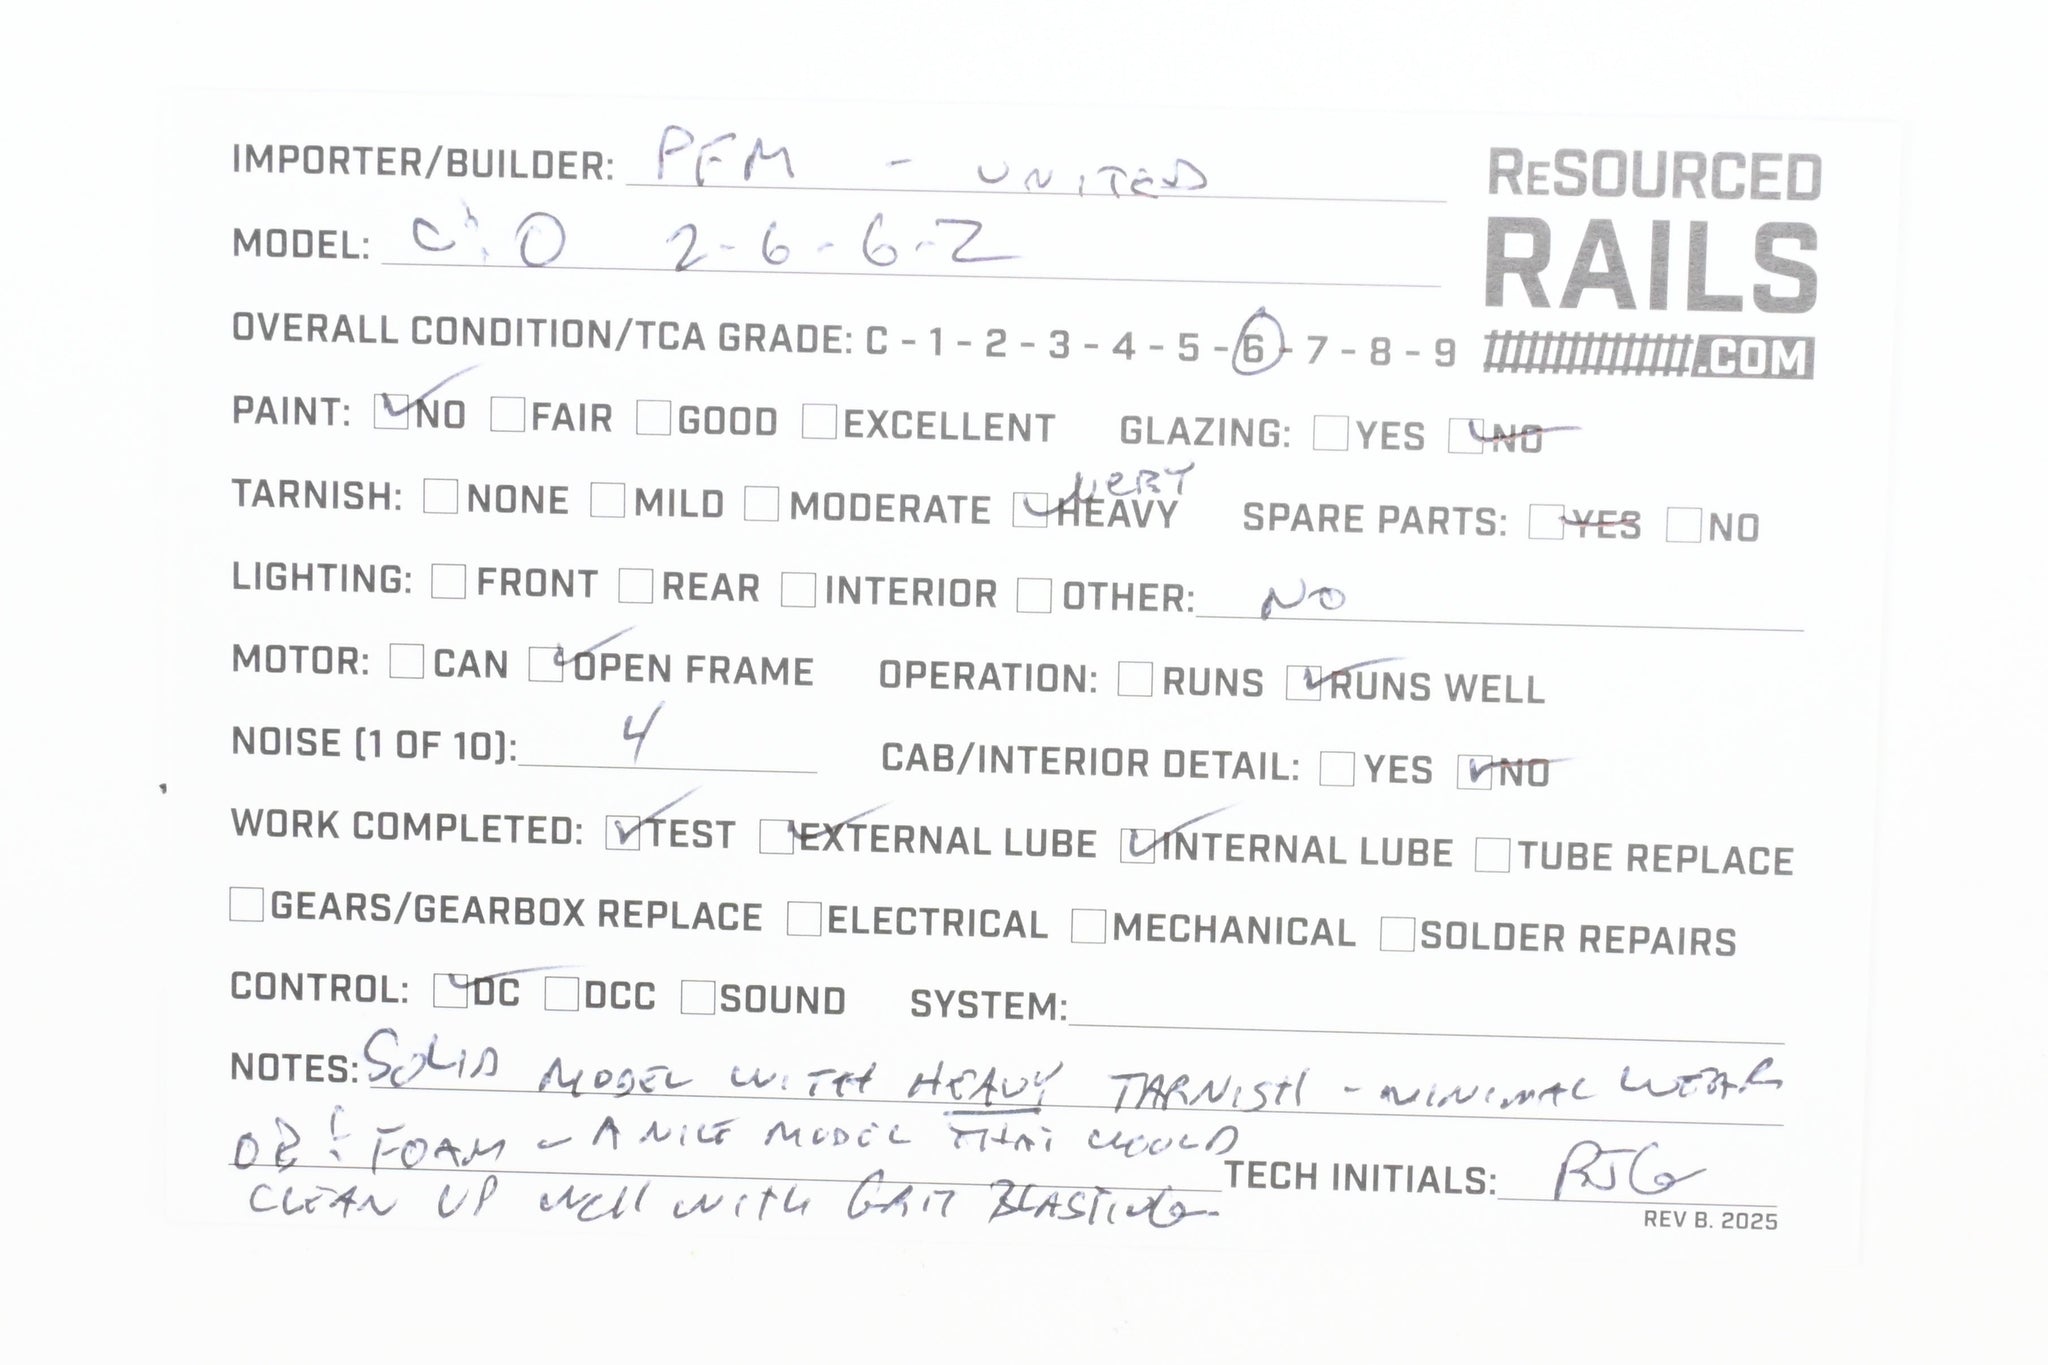 IMPORTER/BUILDER: PFM - UNITED
RESOURCED
RAILS
.COM
MODEL: C&O 2-6-6-2
OVERALL CONDITION/TCA GRADE: C - 1 - 2 - 3 - 4 - 5 - 6 - 7 - 8 - 9
PAINT: NO FAIR GOOD EXCELLENT GLAZING: YES NO
VERY
TARNISH: NONE MILD MODERATE HEAVY SPARE PARTS: YES NO
LIGHTING: FRONT REAR INTERIOR OTHER: NO
MOTOR: CAN OPEN FRAME OPERATION: RUNS RUNS WELL
NOISE (1 OF 10): 4 CAB/INTERIOR DETAIL: YES NO
WORK COMPLETED: TEST EXTERNAL LUBE INTERNAL LUBE TUBE REPLACE
GEARS/GEARBOX REPLACE ELECTRICAL MECHANICAL SOLDER REPAIRS
CONTROL: DC DCC SOUND SYSTEM:
NOTES: SOLID MODEL WITH HEAVY TARNISH - MINIMAL WEAR
OB & FOAM - A NICE MODEL THAT WOULD
CLEAN UP WELL WITH GRIT BLASTING.
TECH INITIALS: RJG
REV B. 2025